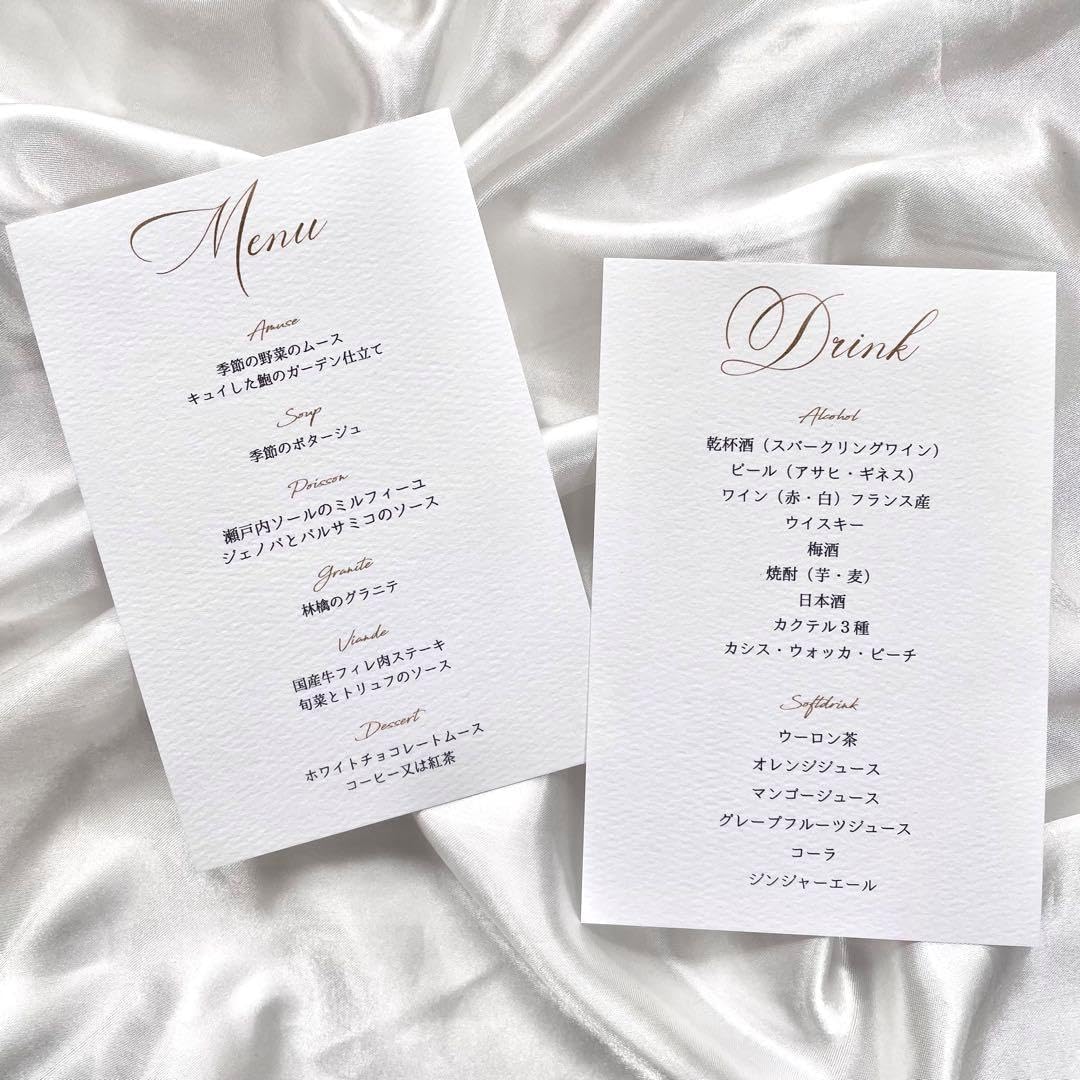 Menu
Amuse
季節の野菜のムース
キュイした鮑のガーデン仕立て
Soup
季節のポタージュ
Poisson
瀬戸内ソールのミルフィーユ
ジェノバとバルサミコのソース
Granite
林檎のグラニテ
Viande
国産牛フィレ肉ステーキ
旬菜とトリュフのソース
Dessert
ホワイトチョコレートムース
コーヒー又は紅茶
Drink
Alcohol
乾杯酒（スパークリングワイン）
ビール（アサヒ・ギネス）
ワイン（赤・白）フランス産
ウイスキー
梅酒
焼酎（芋・麦）
日本酒
カクテル３種
カシス・ウォッカ・ピーチ
Softdrink
ウーロン茶
オレンジジュース
マンゴージュース
グレープフルーツジュース
コーラ
ジンジャーエール